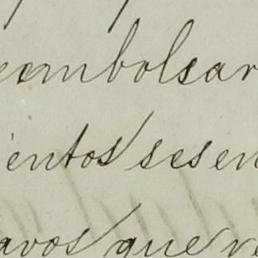 eembolsar
ientos sesen
avos que re